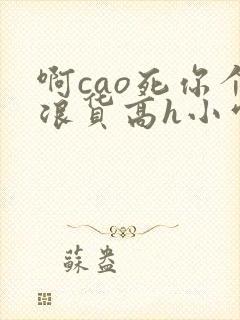 啊cao死你个
浪货高h小
蘇盎